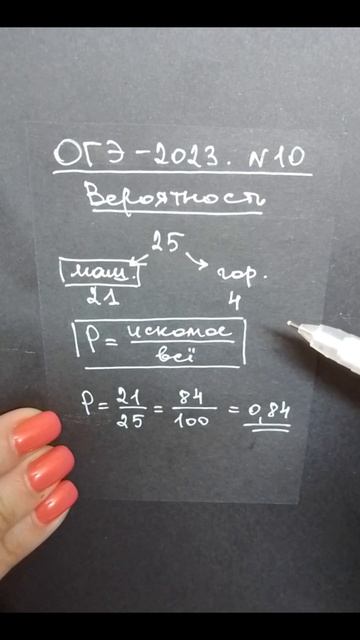 ОГЭ-2023. №10
Вероятность
25
маш. гор.
21 4
P = искомое / всё
P = 21/25 = 84/100 = 0,84